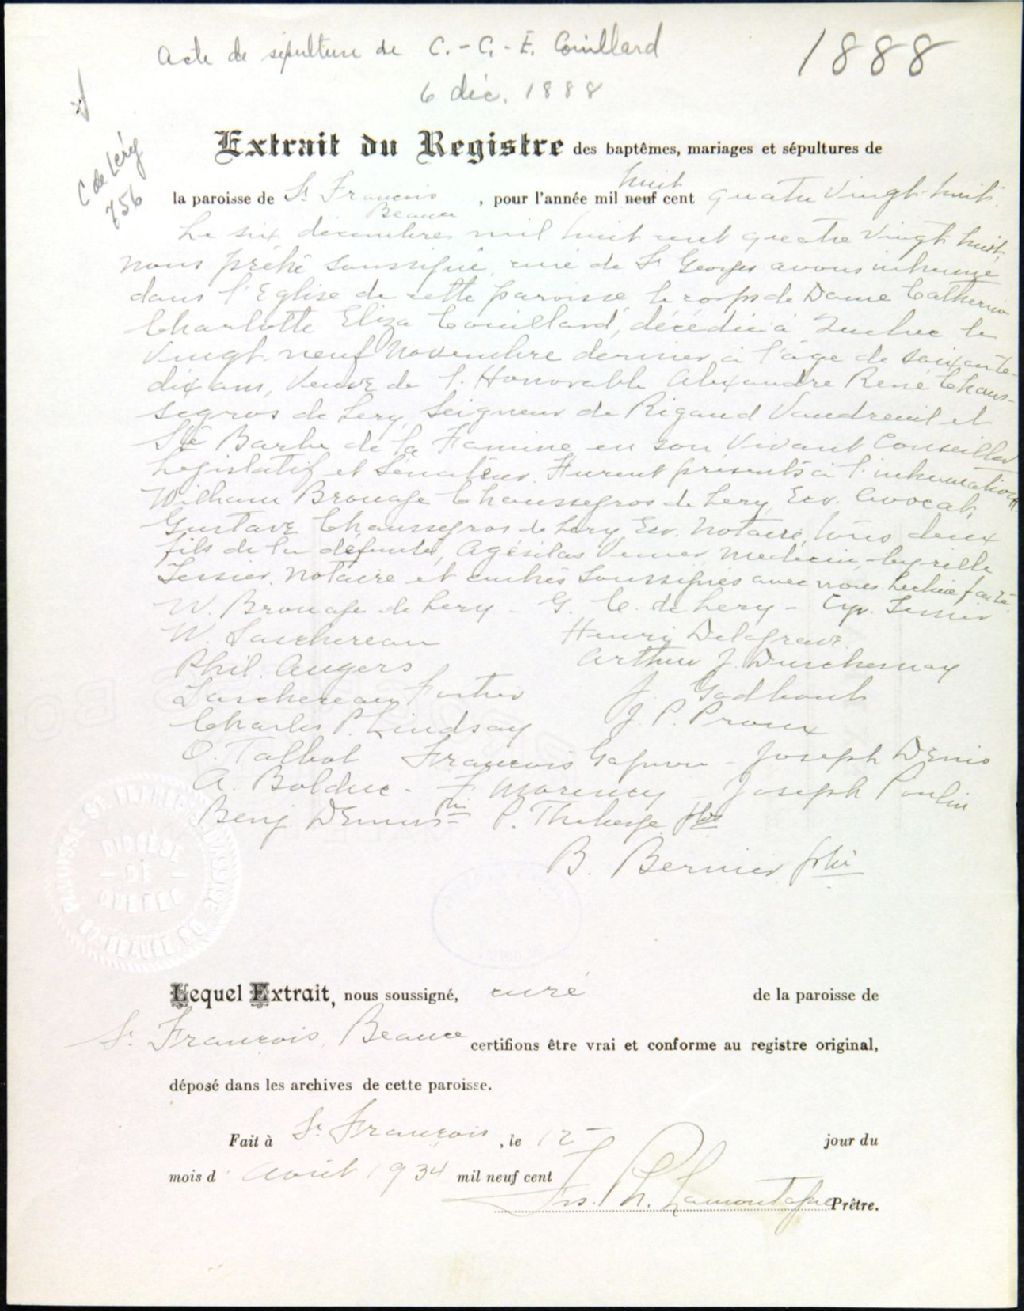 Acte de sépulture de C.-C.-E. Couillard
1888
6 déc. 1888
C de Léry
756
Extrait du Registre des baptêmes, mariages et sépultures de
huit
la paroisse de St François , pour l'année mil neuf cent quatre vingt huit.
Beauce
Le six décembre mil huit cent quatre vingt huit,
nous prêtre soussigné, curé de St Georges avons inhumé
dans l'Eglise de cette paroisse le corps de Dame Catherine
Charlotte Eliza Couillard, décédée à Québec le
vingt neuf Novembre dernier, à l'âge de soixante-
dix ans, veuve de l'Honorable Alexandre René Chaus-
segros de Lery, Seigneur de Rigaud Vaudreuil et
Ste Barbe de la Famine, en son vivant Conseiller
Législatif et Sénateur. Furent présents à l'inhumation
William Brouage Chaussegros de Lery, Ecr. Avocat,
Gustave Chaussegros de Lery, Ecr. Notaire, tous deux
fils de la défunte, Agésilas Médecin, Cyrille
Tessier, Notaire, et autres soussignés avec nous. Lecture faite
W. Brouage de Lery - G. C. de Lery - Cyr. Tessier
W. Taschereau Henri Delagrave
Phil. Angers Arthur J. Duschesnay
Taschereau Fortier J. Gadbout
Charles P. Lindsay J. P. Proulx
O. Talbot François - Joseph Denis
A. Bolduc - F. Morency - Joseph Poulin
Benj. Demers ptre P. Théberge ptre
B. Bernier ptre
PAROISSE ST FRANCOIS
DIOCÈSE
DE
QUÉBEC
Lequel Extrait, nous soussigné, curé de la paroisse de
St François, Beauce certifions être vrai et conforme au registre original,
déposé dans les archives de cette paroisse.
Fait à St François , le 12 jour du
mois d' avril 1934 mil neuf cent
Jos. Ph. Lamontagne Prêtre.